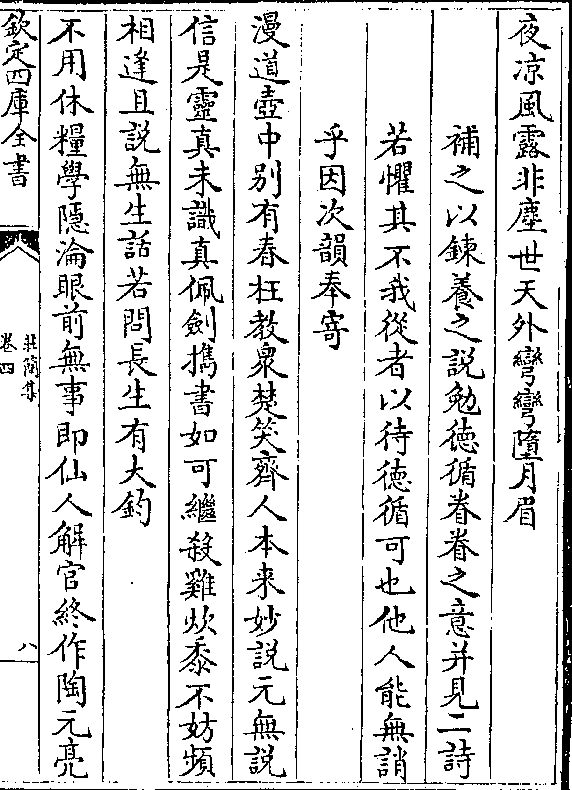 夜凉風露非塵世天外彎彎墮月眉
補之以鍊養之説勉徳循眷眷之意并見二詩
若懼其不我從者以待徳循可也他人能無誚
乎因次韻奉寄
漫道壺中别有春枉教衆楚笑齊人本来妙説元無説
信是靈真未識真佩劍攜書如可繼殺雞炊黍不妨頻
相逢且説無生話若問長生有大鈞
不用休糧學隠淪眼前無事即仙人解官終作陶元亮
欽定四庫全書
莊簡集
卷四
八